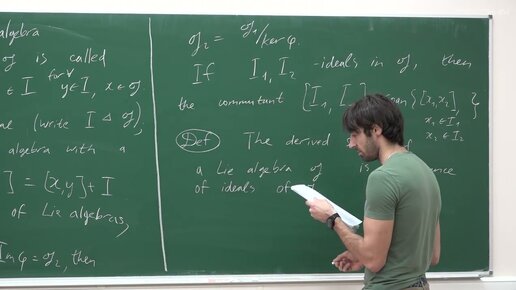 algebra
𝔤 is called
∈ I for ∀ y ∈ I, x ∈ 𝔤.
(write I ⊲ 𝔤)
algebra with a
] = [x,y] + I
of Lie algebras,
Im φ = 𝔤₂, then
𝔤₂ = 𝔤₁/ker φ.
If I₁, I₂ -ideals in 𝔤, then
the commutant [I₁, I {[x₁, x₂],
x₁ ∈ I₁,
x₂ ∈ I₂ }
Def The derived
a Lie algebra 𝔤 is
of ideals of